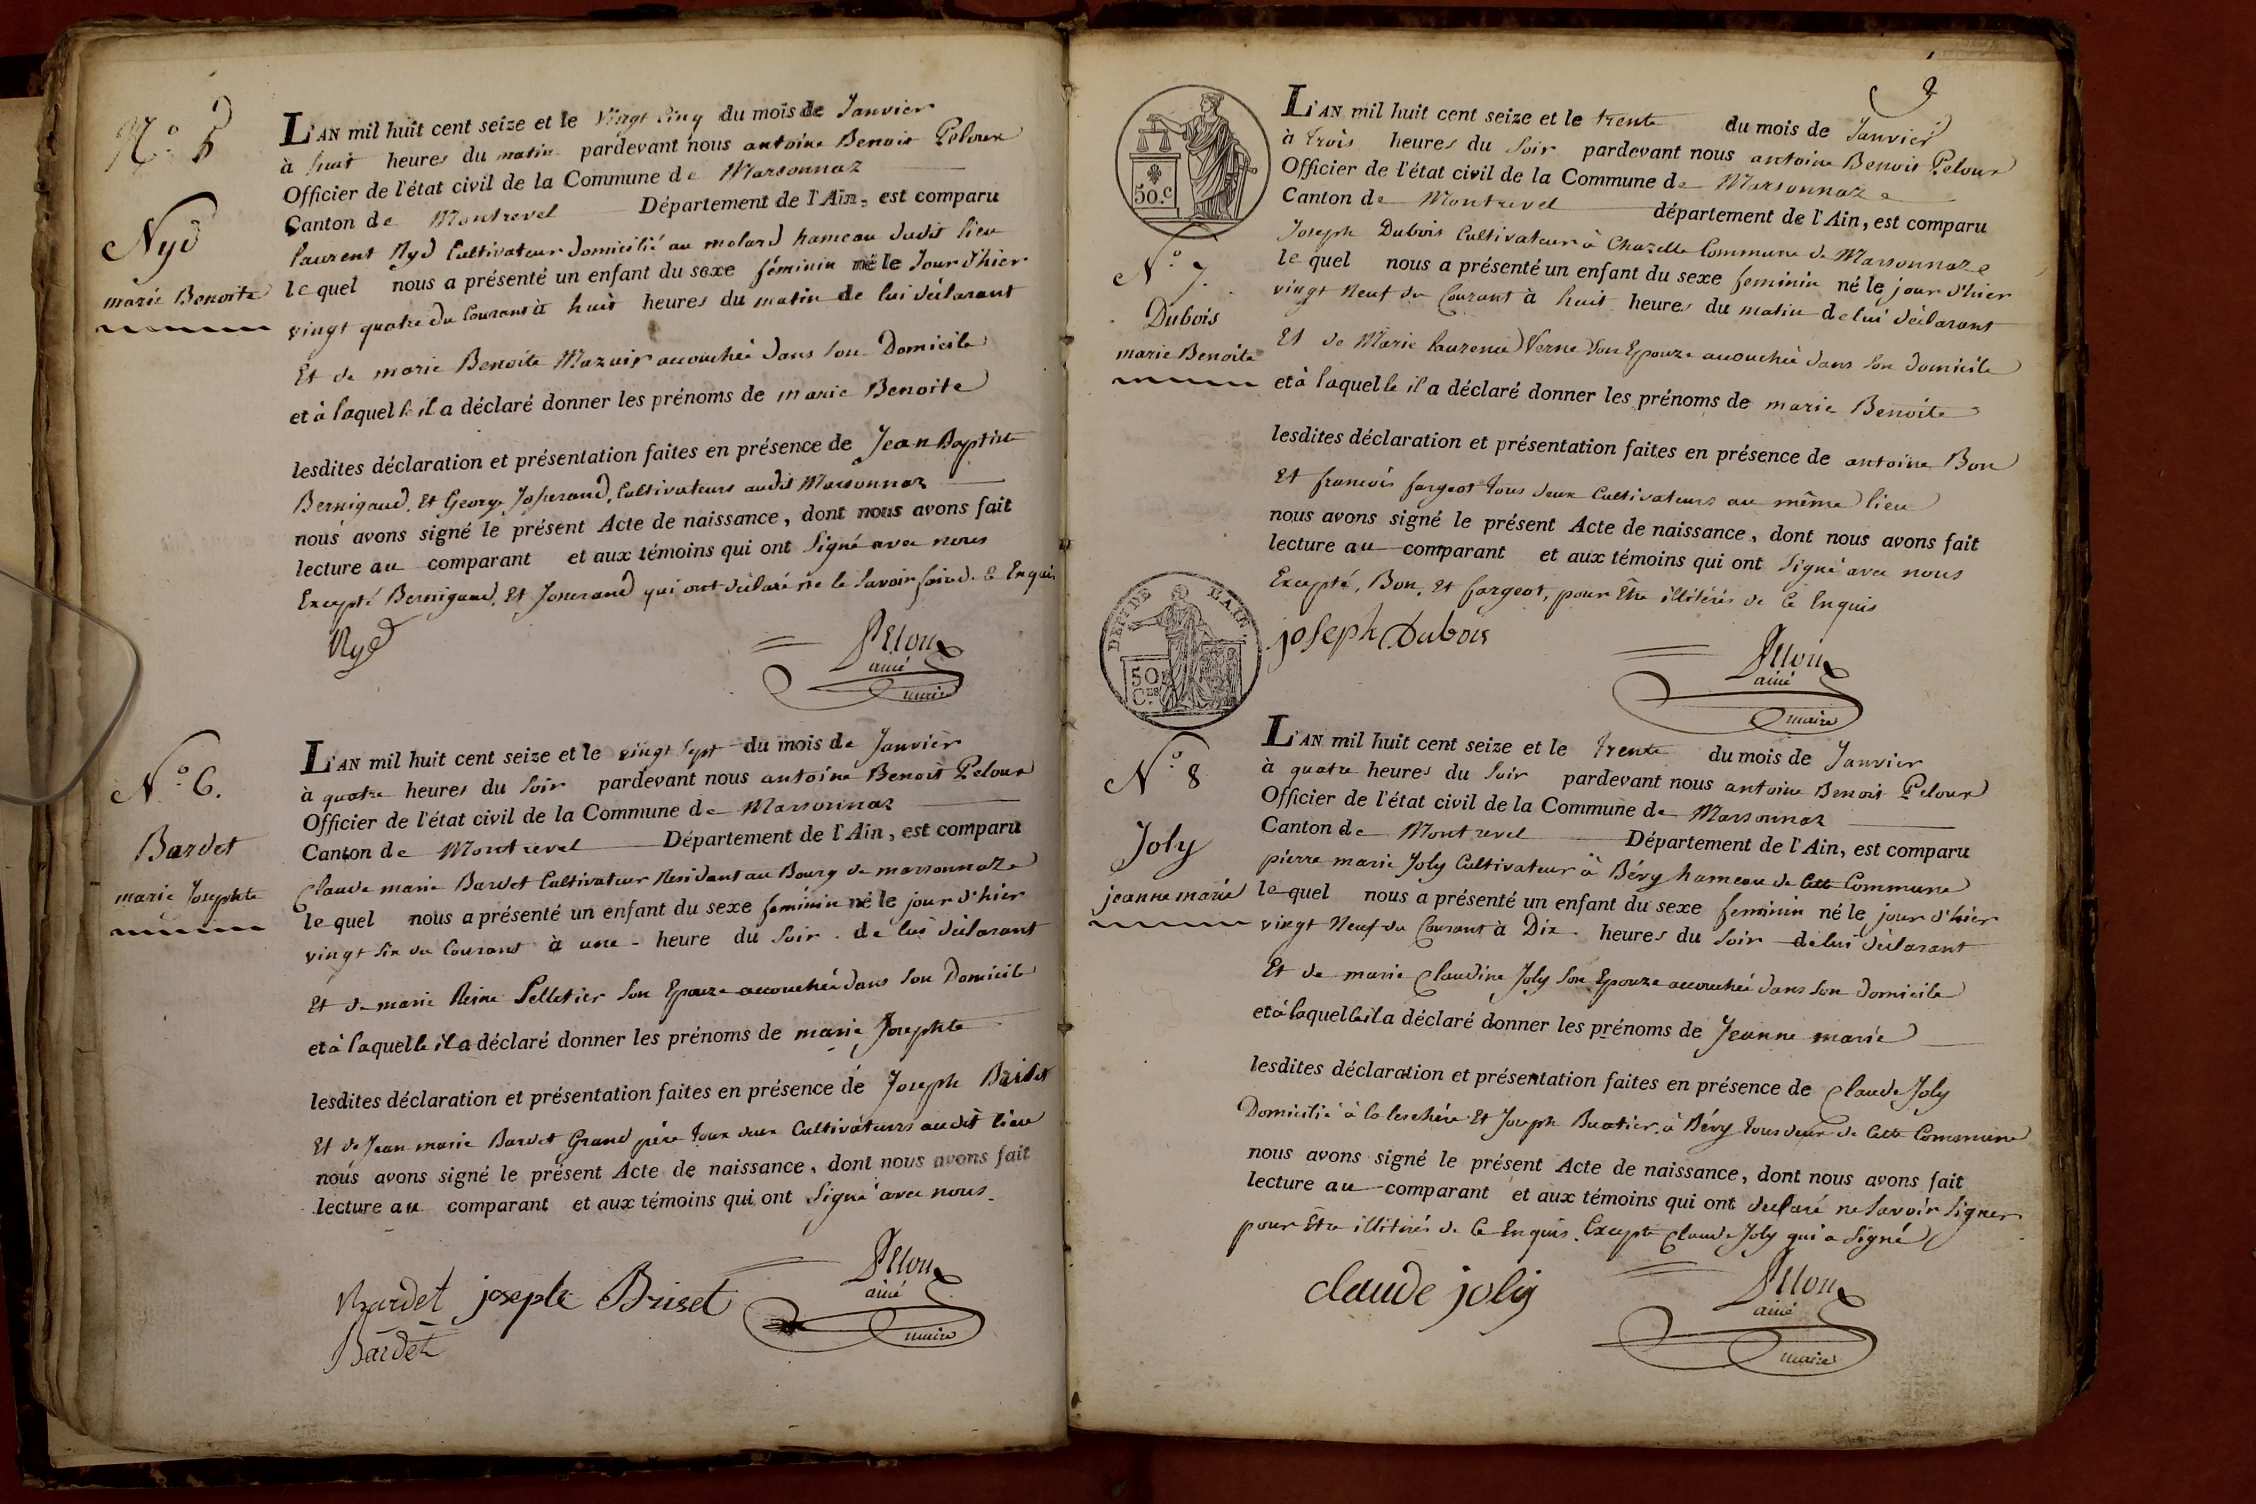 N.° 5
Nyd
marie Benoite
L'AN mil huit cent seize et le vingt cinq du mois de Janvier
à huit heures du matin pardevant nous antoine Benoit Peloux
Officier de l'état civil de la Commune de Marsonnaz
Canton de Montrevel Département de l'Ain, est comparu
laurent Nyd Cultivateur domicilié au molard hameau dudit lieu
lequel nous a présenté un enfant du sexe féminin né le Jour d'hier
vingt quatre du Courant à huit heures du matin de lui déclarant
Et de marie Benoite Mazuir accouchée dans son Domicile
et à laquelle il a déclaré donner les prénoms de marie Benoite
lesdites déclaration et présentation faites en présence de Jean Baptiste
Bernigaud, Et George Josserand, Cultivateurs audit Marsonnaz
nous avons signé le présent Acte de naissance, dont nous avons fait
lecture au comparant et aux témoins qui ont Signé avec nous
Excepté Bernigaud, Et Josserand qui ont déclaré ne le Savoir faire de Ce Enquis
Nyd
Peloux
ainé
maire
N.° 6.
Bardet
marie Josephte
L'AN mil huit cent seize et le vingt Sept du mois de Janvier
à quatre heures du Soir pardevant nous antoine Benoit Peloux
Officier de l'état civil de la Commune de Marsonnaz
Canton de Montrevel Département de l'Ain, est comparu
Claude marie Bardet Cultivateur Residant au Bourg de marsonnaz
lequel nous a présenté un enfant du sexe féminin né le jour d'hier
vingt Six du Courant à une heure du Soir de lui déclarant
Et de marie Reine Pelletier Son Epouze accouchée dans Son Domicile
et à laquelle il a déclaré donner les prénoms de marie Josephte
lesdites déclaration et présentation faites en présence de Joseph Briset
Et de Jean marie Bardet Grand père tous deux Cultivateurs audit lieu
nous avons signé le présent Acte de naissance, dont nous avons fait
lecture au comparant et aux témoins qui ont Signé avec nous.
Bardet joseph Briset
Bardet
Peloux
ainé
maire
2
50.c
N.° 7.
Dubois
marie Benoite
L'AN mil huit cent seize et le trente du mois de Janvier
à trois heures du Soir pardevant nous antoine Benoit Peloux
Officier de l'état civil de la Commune de Marsonnaz
Canton de Montrevel département de l'Ain, est comparu
Joseph Dubois Cultivateur à Chazelle Commune de Marsonnaz
lequel nous a présenté un enfant du sexe feminin né le jour d'hier
vingt Neuf du Courant à huit heures du matin de lui déclarant
Et de Marie laurence Verne Son Epouze accouchée dans Son domicile
et à laquelle il a déclaré donner les prénoms de marie Benoite
lesdites déclaration et présentation faites en présence de antoine Bon
Et francois fargeot tous deux Cultivateurs au même lieu
nous avons signé le présent Acte de naissance, dont nous avons fait
lecture au comparant et aux témoins qui ont Signé avec nous
Excepté, Bon, Et fargeot, pour Être illitérés de Ce Enquis
joseph Dubois
Peloux
ainé
maire
DEPT DE L'AIN.
50
Ces
N.° 8
Joly
jeanne marie
L'AN mil huit cent seize et le trente du mois de Janvier
à quatre heures du Soir pardevant nous antoine Benoit Peloux
Officier de l'état civil de la Commune de Marsonnaz
Canton de Montrevel Département de l'Ain, est comparu
pierre marie Joly Cultivateur à Bévy hameau de Cette Commune
lequel nous a présenté un enfant du sexe feminin né le jour d'hier
vingt Neuf du Courant à Dix heures du Soir de lui déclarant
Et de marie Claudine Joly Son Epouze accouchée dans Son domicile
et à laquelle il a déclaré donner les prénoms de Jeanne marie
lesdites déclaration et présentation faites en présence de Claude Joly
Domicilié à la leschère Et Joseph Buatier, à Bévy tous deux de Cette Commune
nous avons signé le présent Acte de naissance, dont nous avons fait
lecture au comparant et aux témoins qui ont declaré ne Savoir Signer
pour Être illitérés de Ce Enquis. Excepté Claude Joly qui a Signé
claude joly
Peloux
ainé
maire